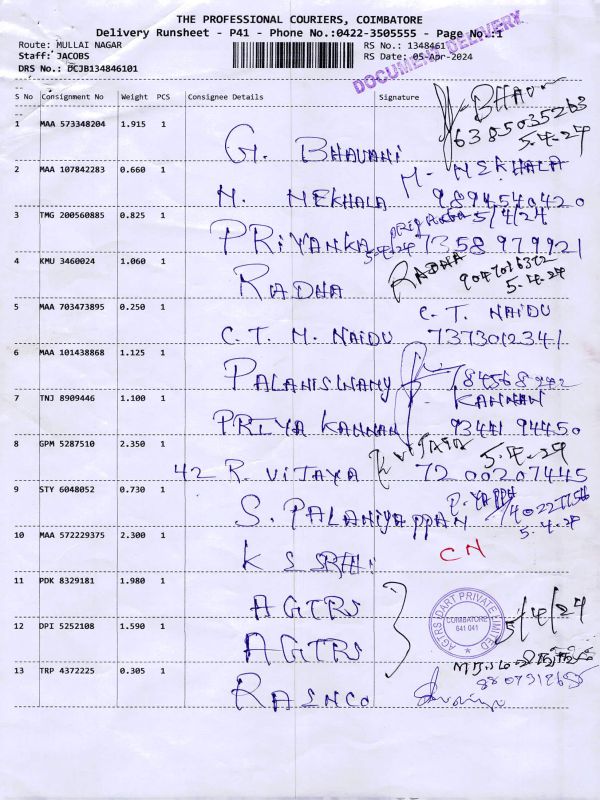 THE PROFESSIONAL COURIERS, COIMBATORE
Delivery Runsheet - P41 - Phone No.:0422-3505555 - Page No.:1
Route: MULLAI NAGAR
RS No.: 1348461
Staff: JACOBS
RS Date: 05-Apr-2024
DRS No.: DCJB134846101
DOCUMENT DELIVERY
S No Consignment No Weight PCS Consignee Details Signature
BHAV
6385035263
5.4.24
1 MAA 573348204 1.915 1
G. BHAVANI
2 MAA 107842283 0.660 1
M. MEKHALA
M. MEKHALA 9894540420
3 TMG 200560885 0.825 1
5/4/24
PRIYANKA 5/4/24 7358979921
4 KMU 3460024 1.060 1
RADHA
RADHA 9047016372
5.4.24
5 MAA 703473895 0.250 1
C. T. NAIDU
C. T. M. NAIDU 7373012341
6 MAA 101438868 1.125 1
PALANISWAMY
7 TNJ 8909446 1.100 1
KANNAN
PRIYA KANNAN 9344194450
8 GPM 5287510 2.350 1
VIJAYA 5.4.24
42 R. VIJAYA 7200207445
9 STY 6048052 0.730 1
S. PALANIYAPPAN
5.4.24
10 MAA 572229375 2.300 1
CN
K S
11 PDK 8329181 1.980 1
AGTRS
5/4/24
AGTRS DART PRIVATE LIMITED
COIMBATORE
641 041
12 DPI 5252108 1.590 1
AGTRS
13 TRP 4372225 0.305 1
RAENCO